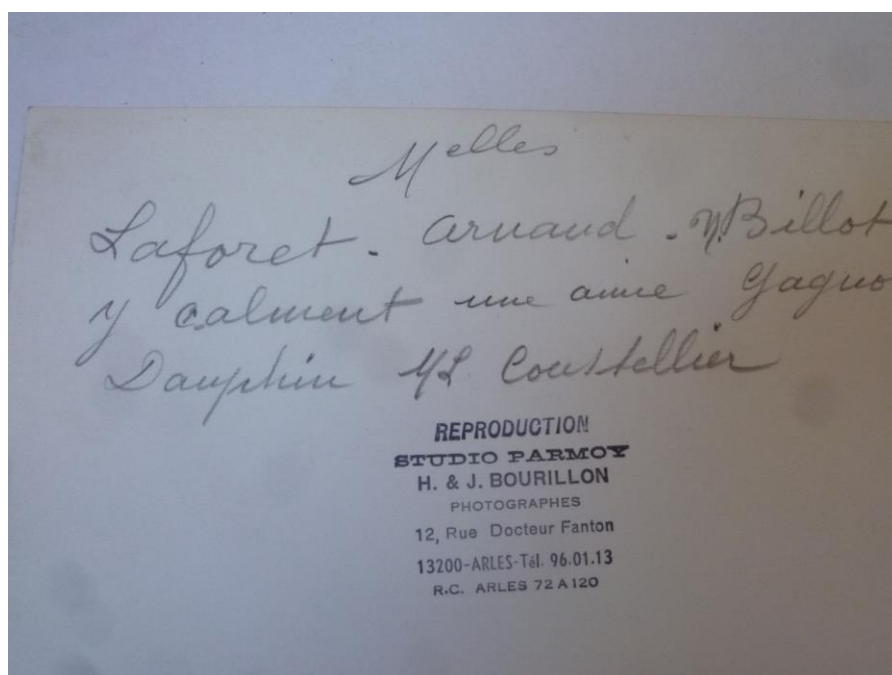 Melles
Laforet - Arnaud - Y. Billot
Y calment une amie Gagno
Dauphin ML Coustellier
REPRODUCTION
STUDIO PARMOY
H. & J. BOURILLON
PHOTOGRAPHES
12, Rue Docteur Fanton
13200-ARLES-Tél. 96.01.13
R.C. ARLES 72 A 120